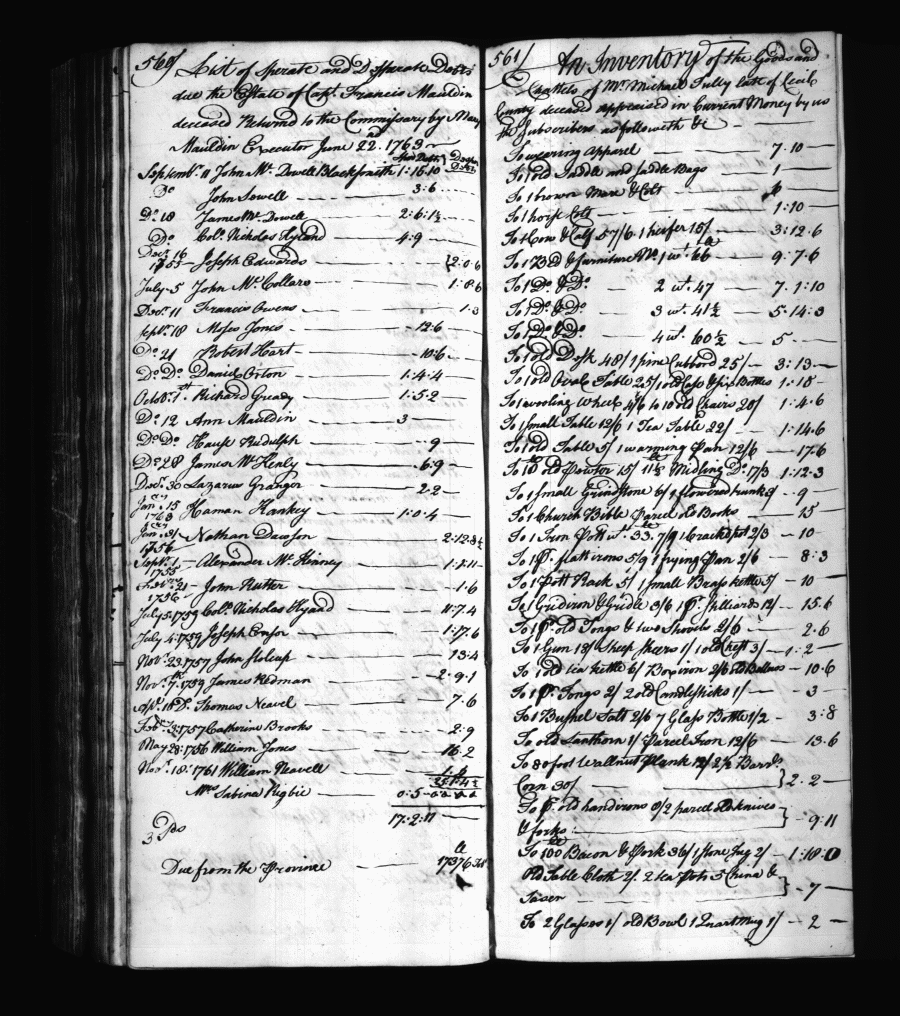 560/ A List of Sperate and Desparate Debts
due the Estate of Capt. Francis Mauldin
deceased Returnd to the Commissary by Mary
Mauldin Executor June 22nd. 1763
Sper Debts Desper Debts
Septembr. 11 John Mc. Dowell Blacksmith 1:16:10
Do John Sewell 3:6
Do. 18 James Mc Dowell 2:6:1½
Do Col. Nicholas Hyland 4:9
Decr. 16 1755 Joseph Edwards 2:0:6
July 5 John Mc. Collars 1:8:6
Decr. 11 Francis Owens 1:3
Septr. 18 Moses Jones 12:6
Do. 21 Robert Hart 10:6
Do. Do. Daniel Orton 1:4:4
Octobr. 1st Richard Gready 1:5:2
Do. 12 Ann Mauldin 3
Do. Do. Hause Rudulph 9
Do. 28 James Mc Henly 6:9
Decr. 30 Lazarus Granger 2:2
Jany. 15 1763 Haman Hankey 1:0:4
Jany 31 1756 Nathan Dawson 2:12:3½
Septr. 1 1755 Alexander Mc. Kinney 1:1:11
Febry. 21 1756 John Rutter 1:6
July 5: 1759 Colo. Nicholas Hyland 11:7:4
July 4: 1759 Joseph Ensor 1:17:6
Novr. 23: 1757 John Stoleup 13:4
Novr. 7th. 1759 James Redman 2:9:1
Apl. 18 Do. Thomas Neavel 7:6
Febr. 3: 1757 Catharine Brooks 2:9
May 28: 1756 William Jones 16:2
Novr. 18: 1761 William Neavell 1:6
Mrs Sabina Rigbie 0:5
17:2:11
Due from the Province 17376 Tob
561/ An Inventory of the Goods and
Chattels of Mr. Michael Tully late of Cecil
County deceased appraised in Current Money by us
the Subscribers as followeth &c
To wearing Apparel 7:10
To 1 old Saddle and Saddle Bags 1
To 1 brown Mare & Colt
To 1 horse Colt 1:10
To 1 Cow & Calf 57/6 1 heifer 15/ 3:12:6
To 1 Bd & furniture No. 1 wt. 66 9:7:6
To 1 Do. & Do. 2 wt. 47 7:1:10
To 1 Do. & Do. 3 wt. 41½ 5:14:3
To 1 Do. & Do. 4 wt. 60½ 5
To 1 old Desk 48/ 1 pine Cubbord 25/ 3:13
To 1 old Ovale Table 25/ 1 old Case & six Bottles 1:18
To 1 wooling Wheel 4/6 to 10 old Chairs 20/ 1:4:6
To 1 Small Table 12/6 1 Tea Table 22/ 1:14:6
To 1 old Table 5/ 1 warming Pan 12/6 17:6
To 10 old Pewter 15/ 11½ Midling Do. 17/3 1:12:3
To 1 Small Grindstone 6/ 1 flowered trunk 3/ 9
To 1 Church Bible Parcel old Books 15
To 1 Iron Pott wt. 33. 7/9 1 Crackt pot 2/3 10
To 1 Pr. flatt irons 5/9 1 frying Pan 2/6 8:3
To 1 Pott Rack 5/ 1 Small Brass kettle 5/ 10
To 1 Gridiron & Gridle 3/6 1 Pr. Stilliards 12/ 15:6
To 1 Pr. old Tongs & two Shovels 2/6 2:6
To 1 Gun 18/ Sheep Sheers 1/ 1 old Chest 3/ 1:2
To 1 old tea kettle 6/ Box iron 2/6 old Bellows 10:6
To 1 Pr. Tongs 2/ 2 old Candlesticks 1/ 3
To 1 Bushel Salt 2/6 7 Glass Bottle 1/2 3:8
To old Lanthorn 1/ Parcel Iron 12/6 13:6
To 80 foot Wallnut Plank 12/ 2½ Barrs.
Corn 30/ 2:2
To Pr. old handirons 8/ 2 parcel old knives
& forks: 9:11
To 100 Bacon & Pork 36/ 1 stone Jug 2/ 1:18:0
Old Table Cloth 2/. 2 tea Pots 5 China &
7
To 2 Glasses 1/ old Bowl 1 Quart Mug 1/ 2